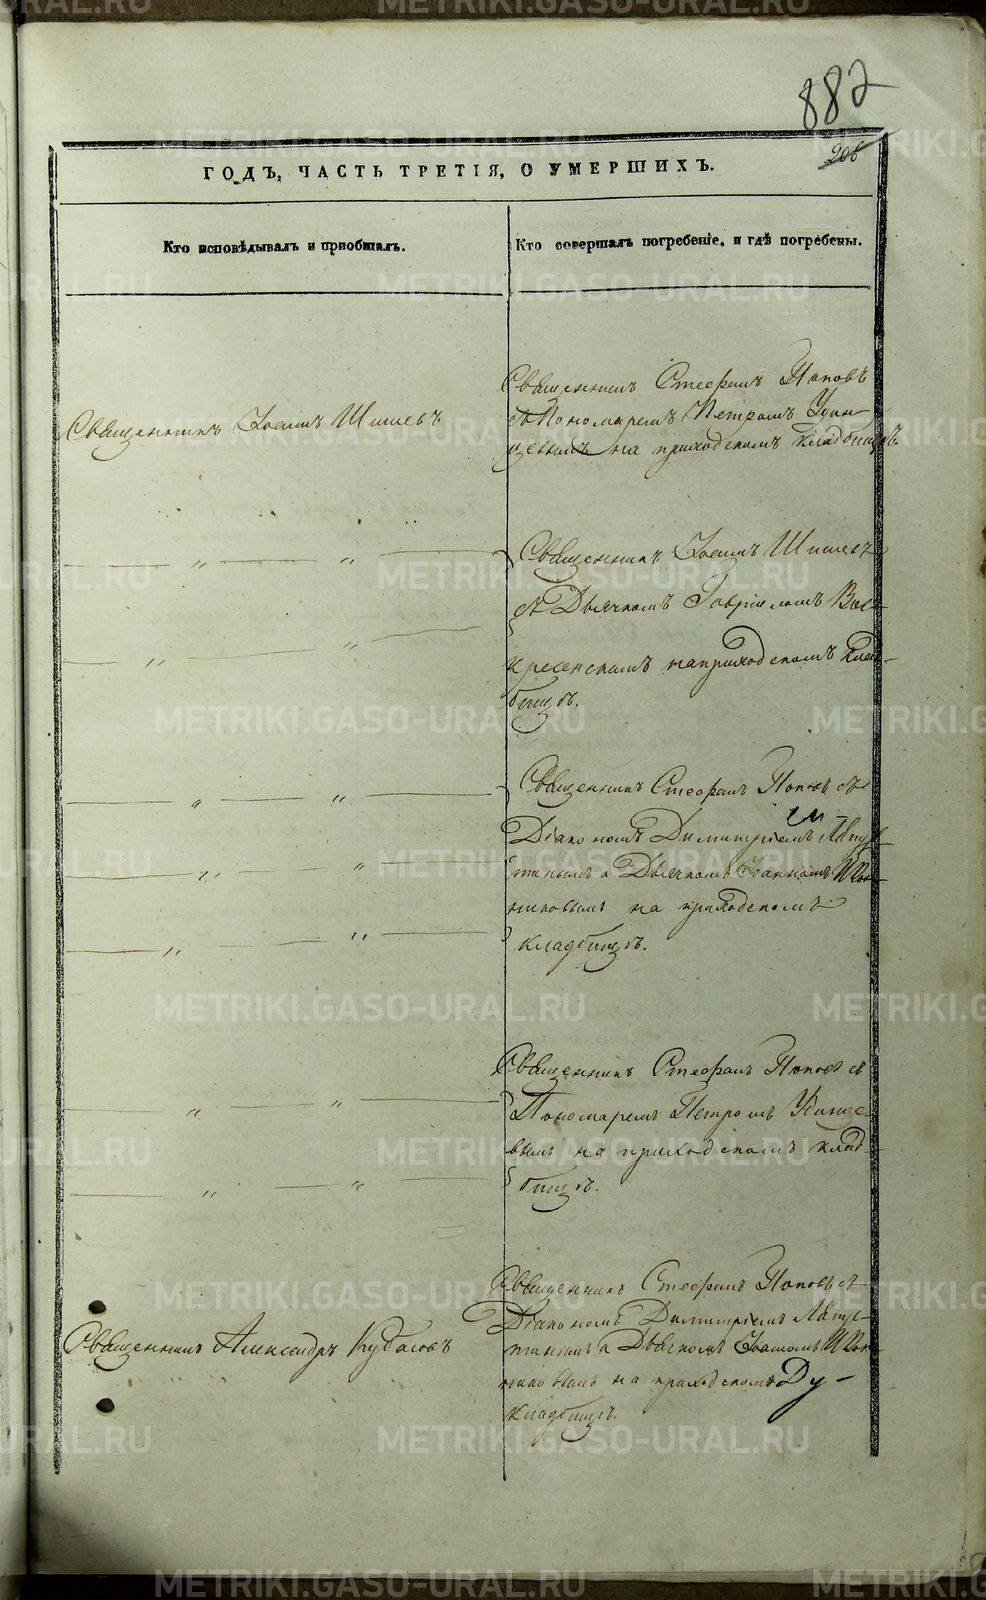 882
206
ГОДЪ, ЧАСТЬ ТРЕТІЯ, О УМЕРШИХЪ.
Кто исповѣдывалъ и приобщалъ.
Кто совершалъ погребеніе, и гдѣ погребены.
Священникъ Іоаннъ Шишевъ
Священникъ Стефанъ Поповъ
съ Пономаремъ Петромъ Удин-
цевымъ на приходскомъ кладбищѣ.
" "
Священникъ Іоаннъ Шишевъ
съ Дьячкомъ Гавріиломъ Вос-
" "
кресенскимъ на приходскомъ клад-
бищѣ.
" "
Священникъ Стефанъ Поповъ съ
Діакономъ Димитріемъ
" "
и Дьячкомъ Іоанномъ
на приходскомъ
" "
кладбищѣ.
Священникъ Стефанъ Поповъ съ
" "
Пономаремъ Петромъ Удинце-
вымъ на приходскомъ клад-
" "
бищѣ.
Священникъ Александръ Кубасовъ
Священникъ Стефанъ Поповъ съ
Діакономъ Димитріемъ
и Дьячкомъ Іоанномъ
на приходскомъ Ду-
кладбищѣ.
METRIKI.GASO-URAL.RU